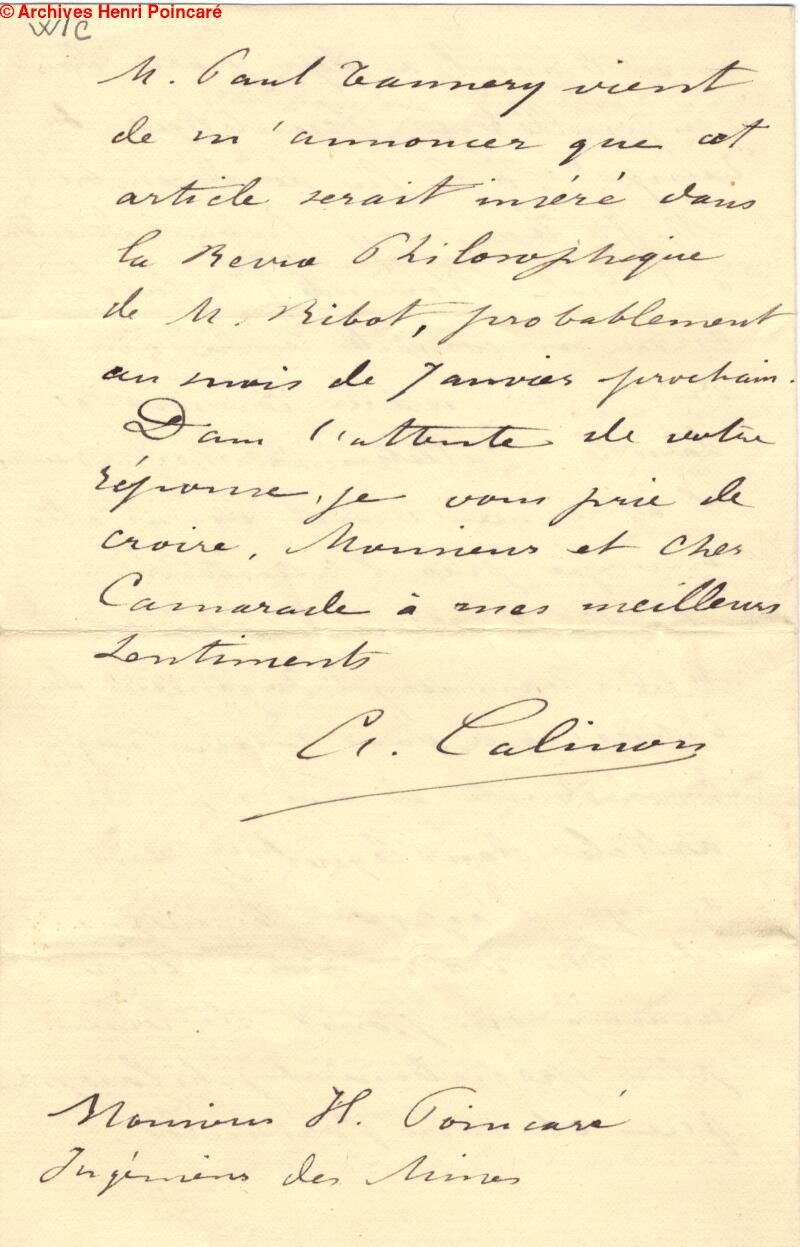 © Archives Henri Poincaré
M. Paul Tannery vient
de m'annoncer que cet
article serait inséré dans
la Revue Philosophique
de M. Ribot, probablement
au mois de Janvier prochain.
Dans l'attente de votre
réponse, je vous prie de
croire, Monsieur et cher
Camarade à mes meilleurs
sentiments
A. Calinon
Monsieur H. Poincaré
Ingénieur des Mines